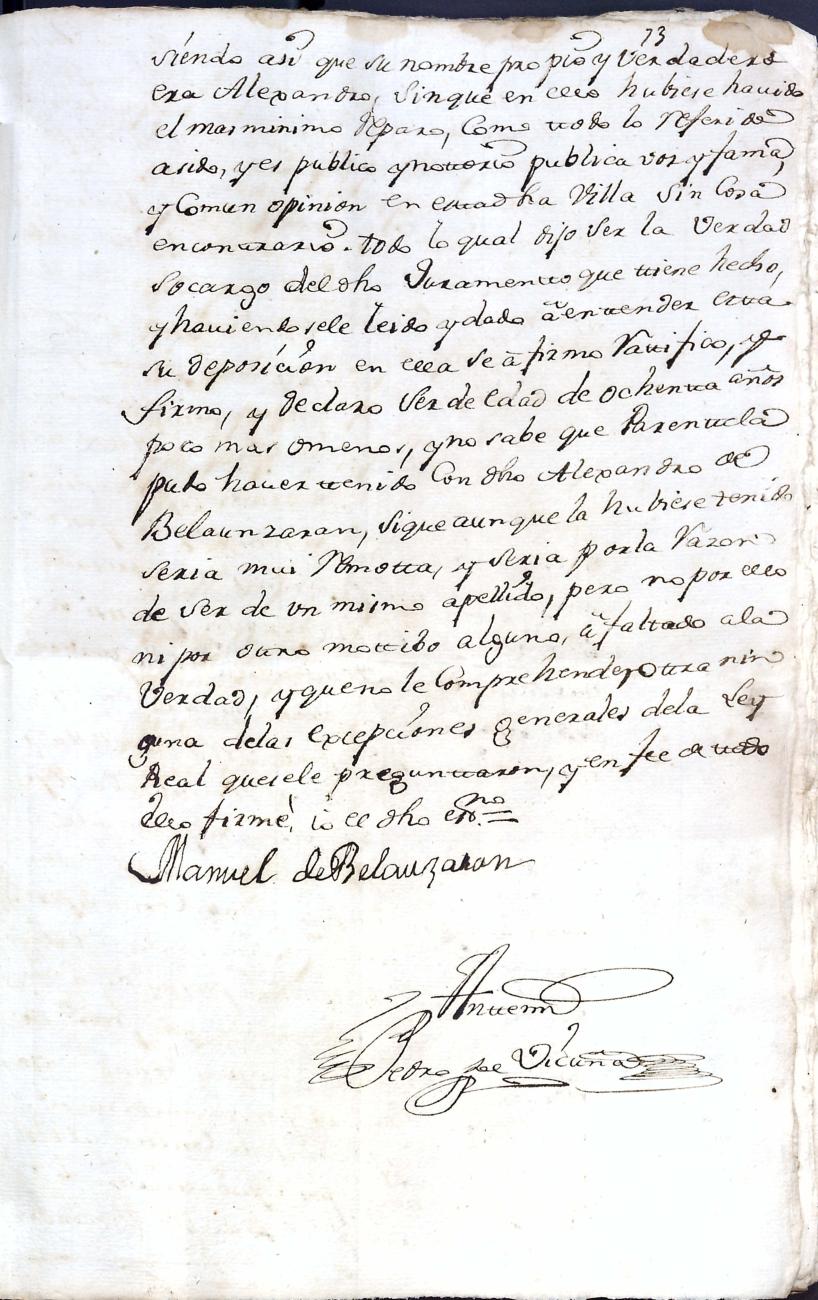 73
siendo asi que su nombre propio y Verdadero
era Alexandro, sin que en ello hubiese havido
el mas minimo Reparo, Como ttodo lo referido
a sido, y es publico y nottorio publica voz y fama,
y Comun opinion en estta dha Villa sin Cosa
en conttrario. todo lo qual dijo ser la Verdad
so cargo del dho Juramentto que ttiene hecho,
y haviendosele leido y dado â enttender estta
su deposición en ella se âfirmo Rattifico, y
firmo, y declaro Ser de edad de ochentta años
poco mas o menos, y no sabe que Parenttela
pudo haver ttenido Con dho Alexandro de
Belaunzaran, si que aunque la hubiese tenido
seria mui Remotta, y seria por la Razon
de ser de un mismo apellido, pero no por ello
ni por ottro mottibo alguno, â faltado a la
Verdad, y que no le Comprehende ottra nin
guna de las excepciones Generales de la Ley
Real que se le preguntaron, y en fee de ttodo
ello firmé, io el dho essno.=
Manuel de Belauzaran
Antte mi
Pedro Jos Vicuña